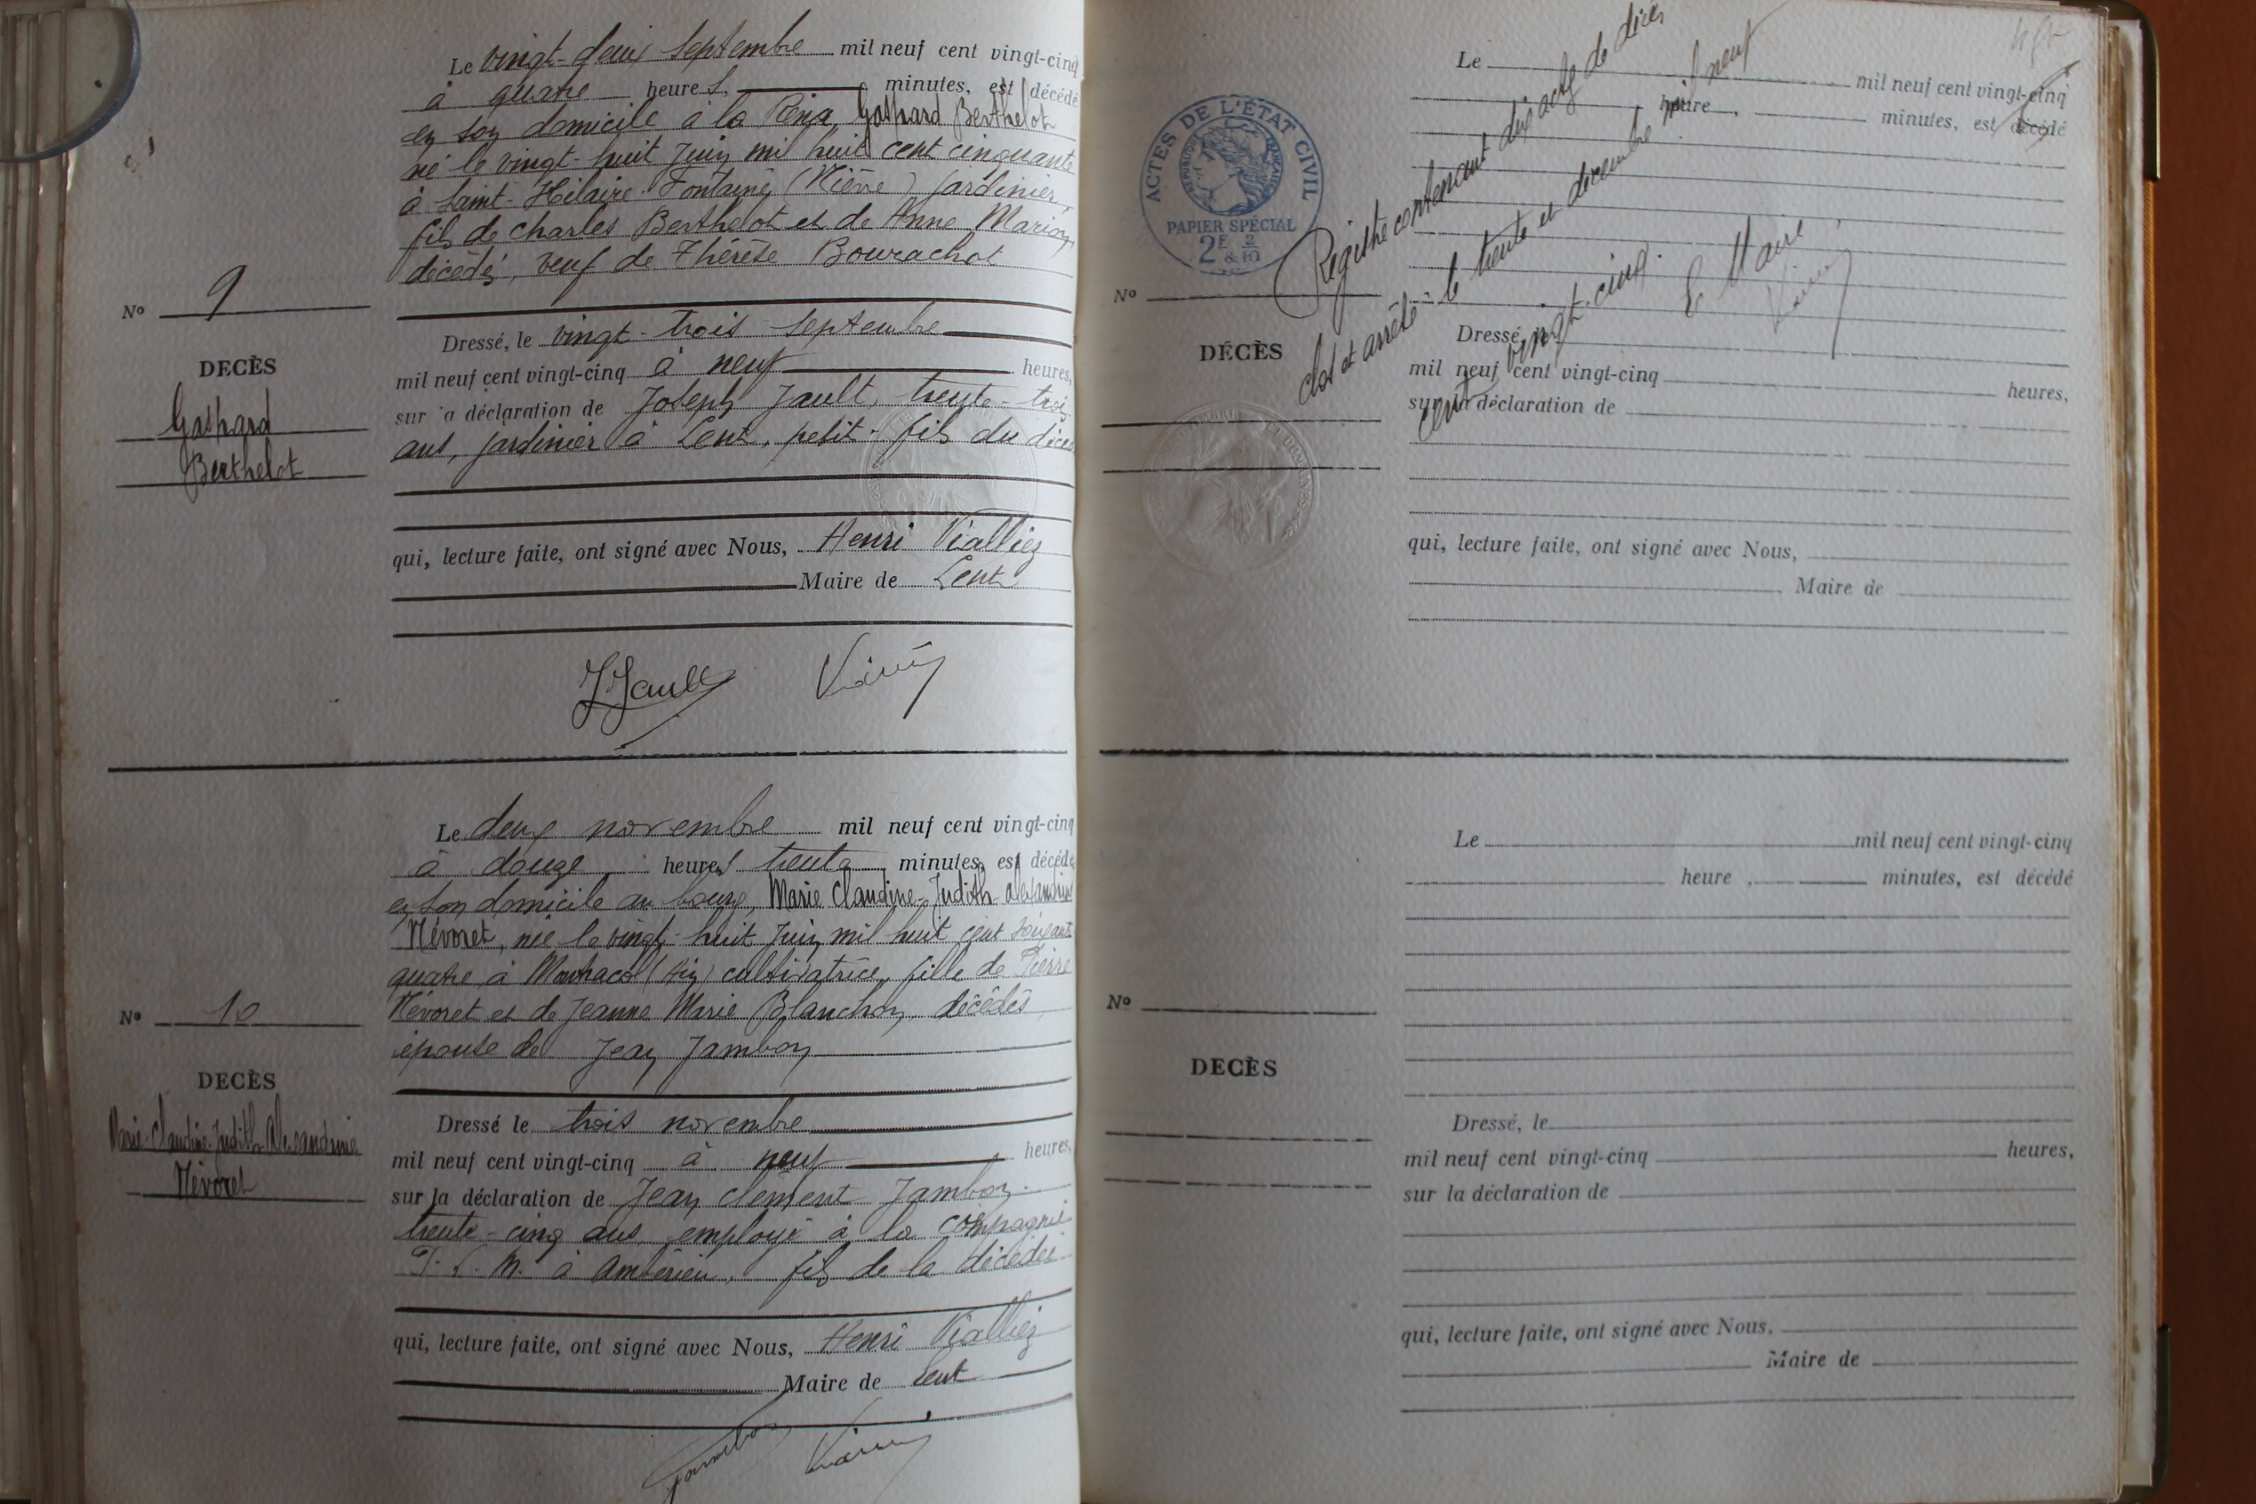 Le vingt-deux septembre mil neuf cent vingt-cinq
à quatre heures, minutes, est décédé
en son domicile à la Réna, Gaspard Berthelot
né le vingt-huit Juin mil huit cent cinquante
à Saint-Hilaire-Fontaine (Nièvre) jardinier,
fils de Charles Berthelot et de Anne Marion,
décédés, veuf de Thérèse Bourachot
No 9
DECÈS
Gaspard
Berthelot
Dressé, le vingt-trois septembre
mil neuf cent vingt-cinq à neuf heures,
sur la déclaration de Joseph Jault, trente-trois
ans, jardinier à Lent, petit-fils du décé
qui, lecture faite, ont signé avec Nous, Henri Vialliez
Maire de Lent
J. Jault
Le deux novembre mil neuf cent vingt-cinq
à douze heures trente minutes, est décédé
en son domicile au bourg, Marie Claudine-Judith-Alexandrine
Névoret, née le vingt-huit Juin mil huit cent soixante
quatre à Montracol (Ain) cultivatrice, fille de Pierre
Névoret et de Jeanne Marie Blanchon, décédés,
épouse de Jean Jambon
No 10
DECÈS
Marie-Claudine-Judith Alexandrine
Névoret
Dressé le trois novembre
mil neuf cent vingt-cinq à neuf heures,
sur la déclaration de Jean Clément Jambon
trente-cinq ans, employé à la compagnie
P. L. M. à Ambérieu, fils de la décédée
qui, lecture faite, ont signé avec Nous, Henri Vialliez
Maire de Lent
Jambon
Le mil neuf cent vingt-cinq
heure , minutes, est décédé
ACTES DE L'ÉTAT CIVIL
RÉPUBLIQUE FRANÇAISE
PAPIER SPÉCIAL
2F & 2/10
Registre contenant dix actes de décès
clos et arrêté le trente et un décembre mil neuf
cent vingt-cinq.
Le Maire
No
DÉCÈS
Dressé, le
mil neuf cent vingt-cinq heures,
sur la déclaration de
qui, lecture faite, ont signé avec Nous,
Maire de
Le mil neuf cent vingt-cinq
heure , minutes, est décédé
No
DECÈS
Dressé, le
mil neuf cent vingt-cinq heures,
sur la déclaration de
qui, lecture faite, ont signé avec Nous,
Maire de